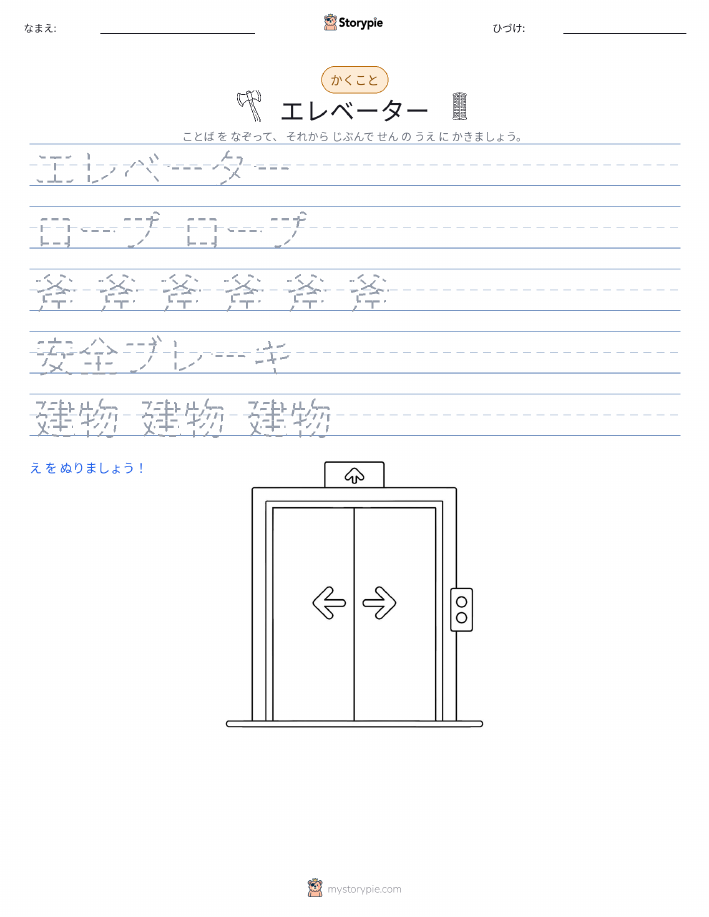 なまえ:
Storypie
ひづけ:
かくこと
エレベーター
ことば を なぞって、 それから じぶんで せん の うえ に かきましょう。
エレベーター
ロープ ロープ
斧 斧 斧 斧 斧 斧
安全ブレーキ
建物 建物 建物
え を ぬりましょう！
mystorypie.com